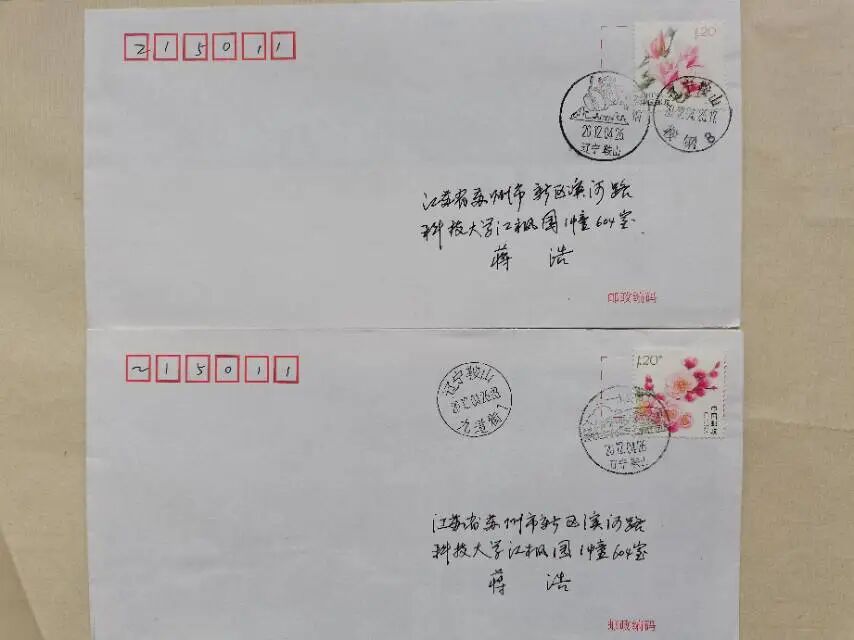 215011
1.20
2012.04.26
辽宁鞍山
江苏省苏州市新区滨河路
科技大学江枫园14幢604室
蒋 浩
邮政编码
215011
1.20
中国邮政
辽宁鞍山
2012.04.26
辽宁鞍山
江苏省苏州市新区滨河路
科技大学江枫园14幢604室
蒋 浩
邮政编码